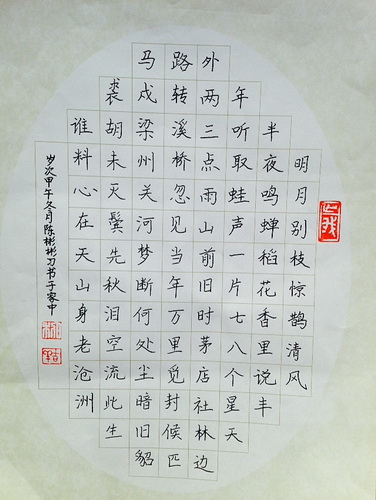 明月别枝惊鹊清风
半夜鸣蝉稻花香里说丰
年听取蛙声一片七八个星天
外两三点雨山前旧时茅店社林边
路转溪桥忽见当年万里觅封候匹
马戍梁州关河梦断何处尘暗旧貂
裘胡未灭鬓先秋泪空流此生
谁料心在天山身老沧洲
岁次甲午冬月陈彬彬习书于家中